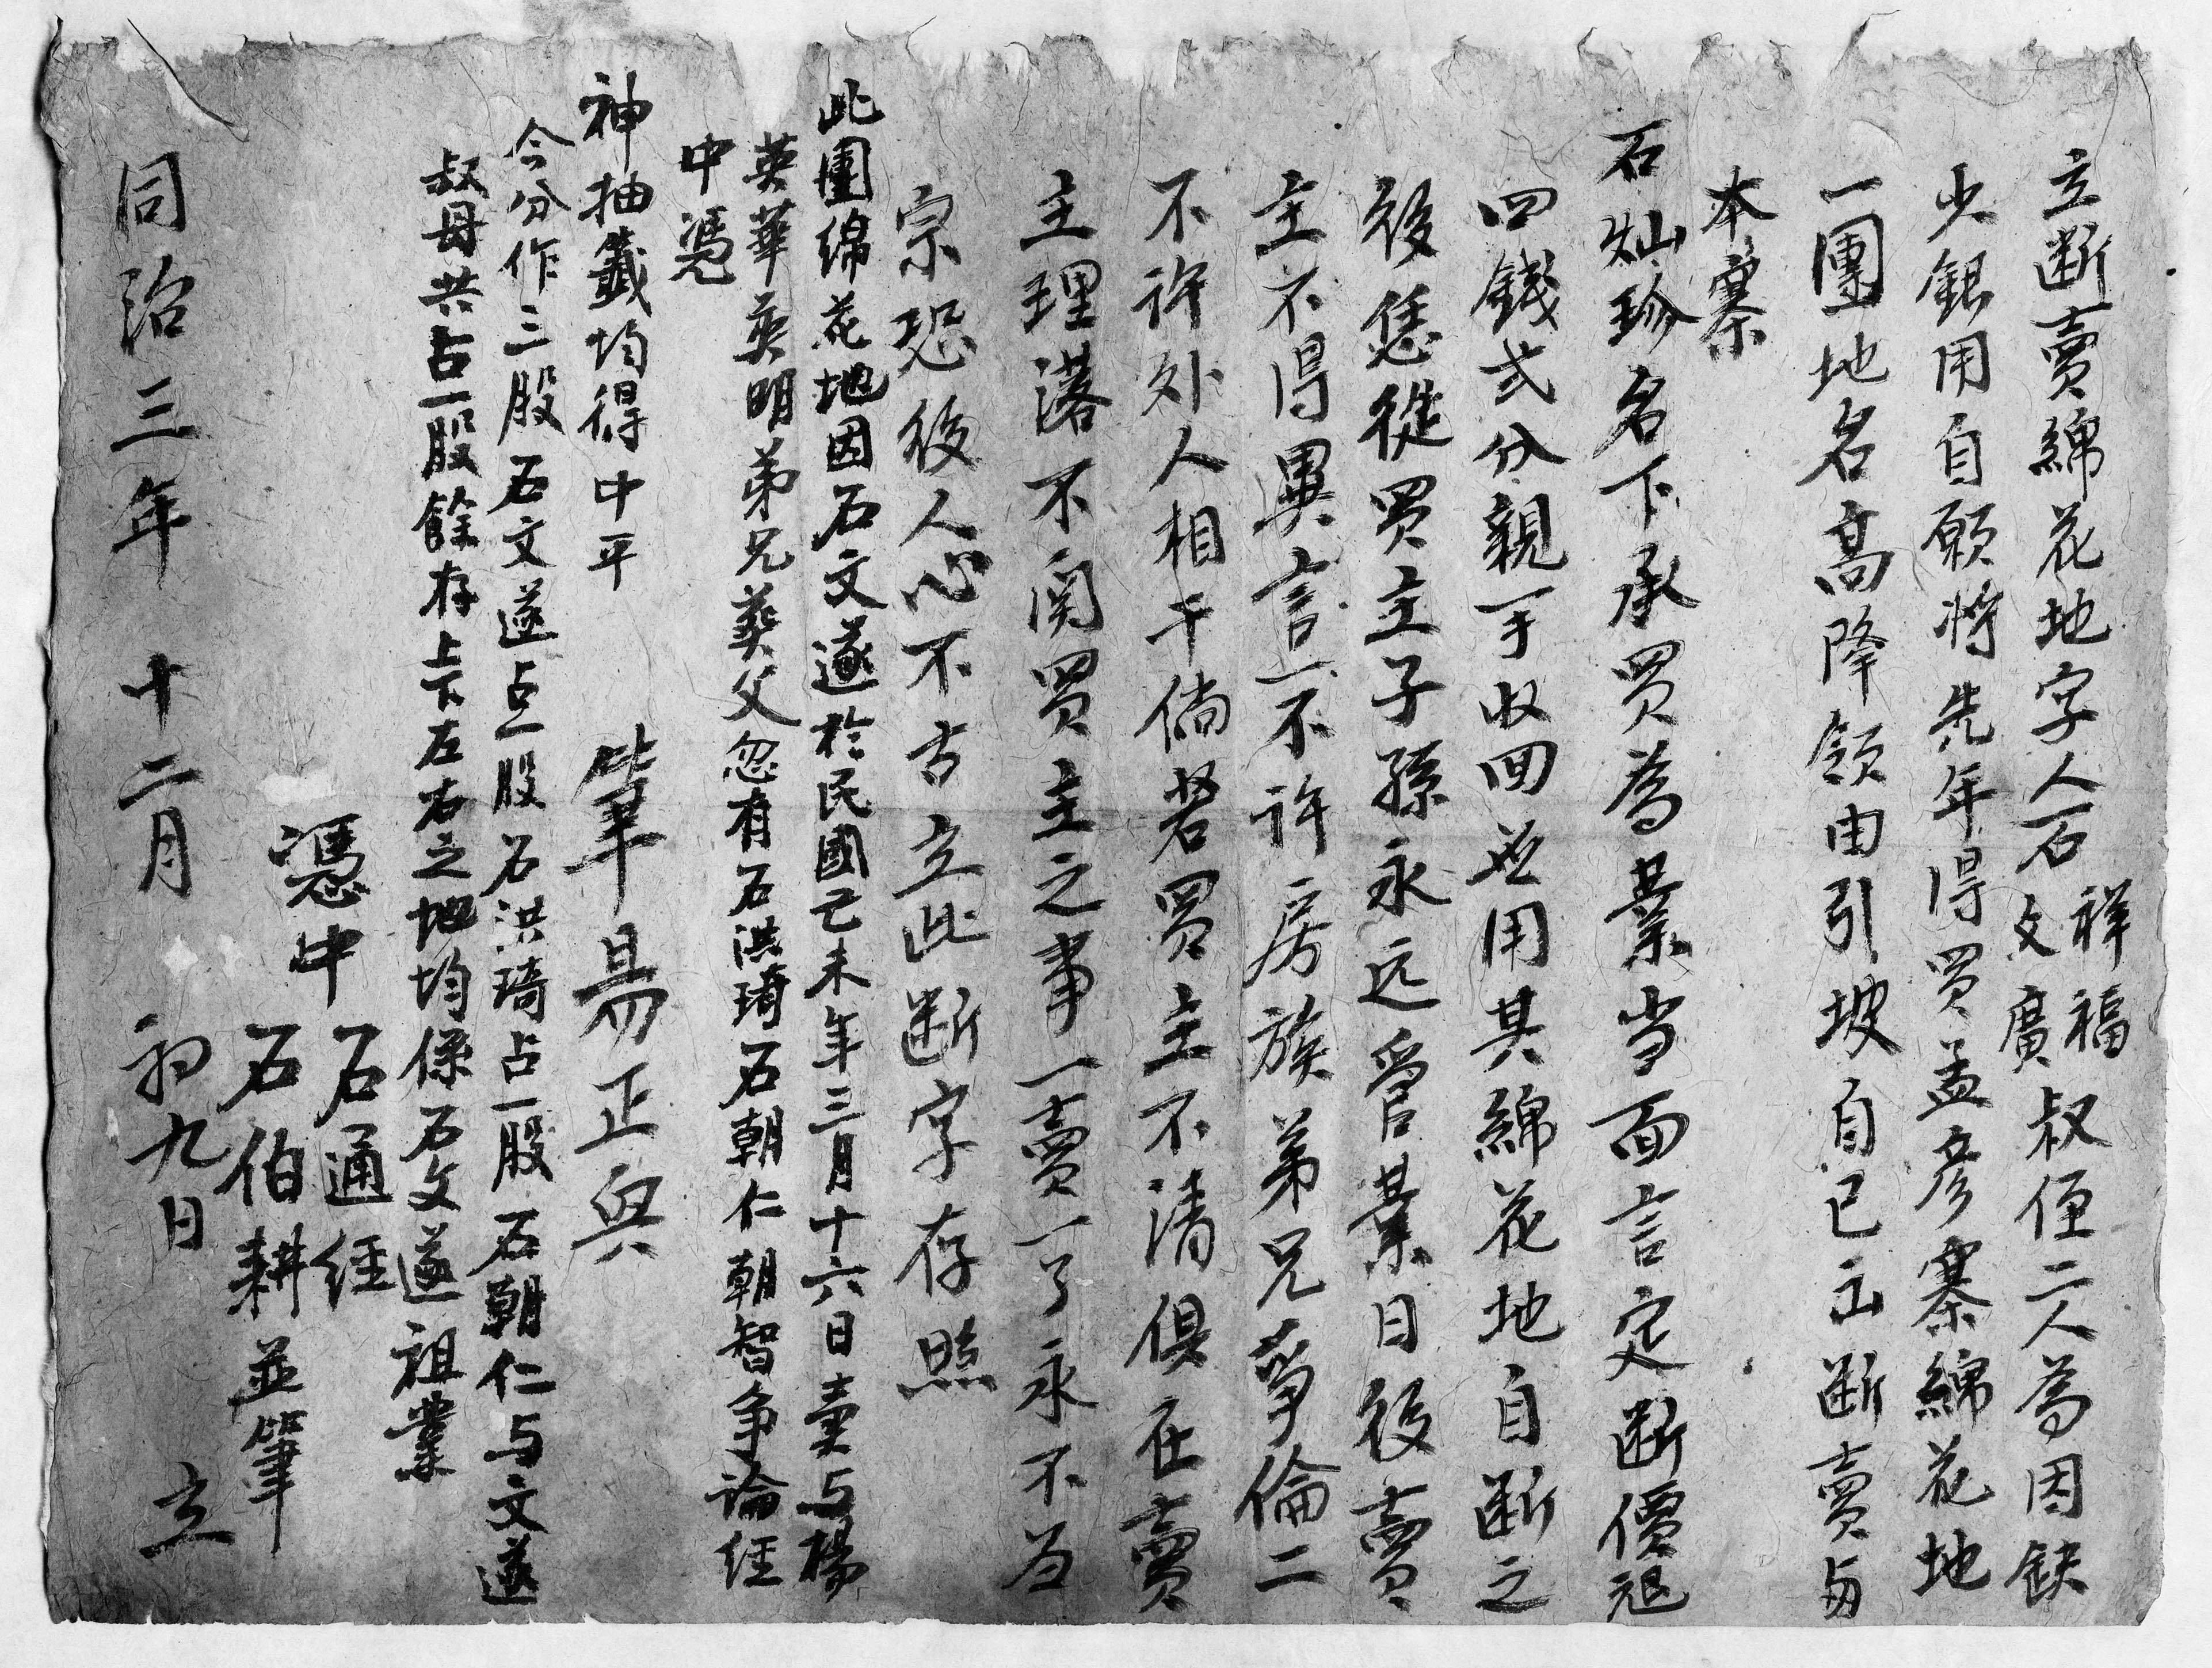 立断賣綿花地字人石文 祥福 廣 叔侄二人為因缺
少銀用自願将先年得買孟彦寨綿花地
一團地名高降領由引坡自己立断賣与
本寨
石灿珍名下承買為業当面言定断價
四錢弍分親手收回並用其綿花地自断之
後恁從買主子孫永远管業日後賣
主不得異言一不許房族弟兄爭倫二
不許外人相干倘若買主不清俱在賣
主理落不関買主之事一賣一了永不为
宗恐後人心不古立此断字存照
此團綿花地因石文遂於民國己未年三月十六日賣与楊
英華英明弟兄葬父忽有石洪琦石朝仁朝智争論经
中凴
神抽籤均得中平 筆昜正興
今分作三股石文遂占一股石洪琦占一股石朝仁与文遂
叔母共占一股餘存上下左右之地均係石文遂祖業
憑中 石通经
石伯耕並筆
同治三年十二月初九日 立